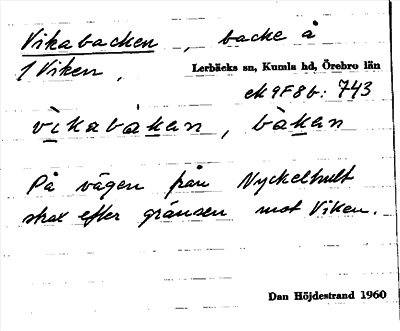 Vikabacken, backe å
1 Viken,
Lerbäcks sn, Kumla hd, Örebro län
ek 9F8b: 743
vìkabàkan, bàkan
På vägen från Nyckelhult
strax efter gränsen mot Viken.
Dan Höjdestrand 1960